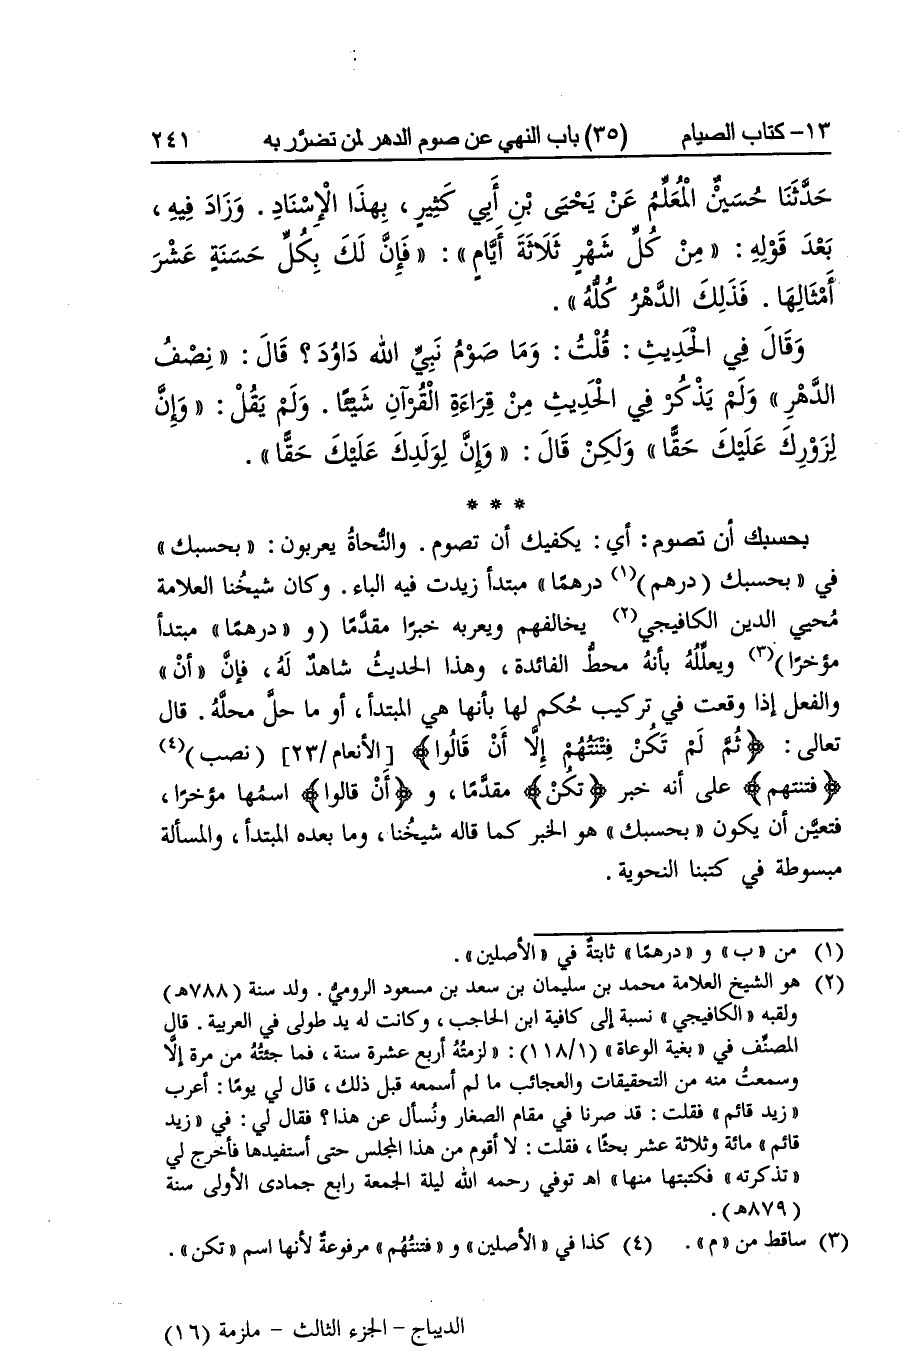 ١٣- كتاب الصيام (٣٥) باب النهي عن صوم الدهر لمن تضرَّر به ٢٤١
حَدَّثَنَا حُسَيْنٌ الْمُعَلِّمُ عَنْ يَحْيَى بْنِ أَبِي كَثِيرٍ ، بِهذَا الْإِسْنَادِ . وَزَادَ فِيهِ ،
بَعْدَ قَوْلِهِ : « مِنْ كُلِّ شَهْرٍ ثَلَاثَةَ أَيَّامٍ » : « فَإِنَّ لَكَ بِكُلِّ حَسَنَةٍ عَشْرَ
أَمْثَالِهَا . فَذَلِكَ الدَّهْرُ كُلُّهُ » .
وَقَالَ فِي الْحَدِيثِ : قُلْتُ : وَمَا صَوْمُ نَبِيِّ الله دَاوُدَ ؟ قَالَ : « نِصْفُ
الدَّهْرِ » وَلَمْ يَذْكُرْ فِي الْحَدِيثِ مِنْ قِرَاءَةِ الْقُرْآنِ شَيْئًا . وَلَمْ يَقُلْ : « وَإِنَّ
لِزَوْرِكَ عَلَيْكَ حَقًّا » وَلَكِنْ قَالَ : « وَإِنَّ لِوَلَدِكَ عَلَيْكَ حَقًّا » .
* * *
بحسبك أن تصوم : أي : يكفيك أن تصوم . والنُّحاةُ يعربون : « بحسبك »
في « بحسبك (درهم)(١) درهمًا » مبتدأ زيدت فيه الباء . وكان شيخُنا العلامة
مُحيي الدين الكافيجي(٢) يخالفهم ويعربه خبرًا مقدَّمًا (و « درهمًا » مبتدأ
مؤخرًا)(٣) ويعلِّلُهُ بأنهُ محطُّ الفائدة ، وهذا الحديثُ شاهدٌ لَهُ ، فإنَّ « أنْ »
والفعل إذا وقعت في تركيب حُكم لها بأنها هي المبتدأ ، أو ما حلَّ محلَّهُ . قال
تعالى : ﴿ ثُمَّ لَمْ تَكُنْ فِتْنَتُهُمْ إِلَّا أَنْ قَالُوا ﴾ [الأنعام/٢٣] (نصب)(٤)
﴿ فتنتهم ﴾ على أنه خبر ﴿ تكُنْ ﴾ مقدَّمًا ، و ﴿ أَنْ قالوا ﴾ اسمُها مؤخرًا ،
فتعيَّن أن يكون « بحسبك » هو الخبر كما قاله شيخُنا ، وما بعده المبتدأ ، والمسألة
مبسوطة في كتبنا النحوية .
(١) من « ب » و « درهمًا » ثابتةٌ في « الأصلين » .
(٢) هو الشيخ العلامة محمد بن سليمان بن سعد بن مسعود الروميُّ . ولد سنة (٧٨٨هـ)
ولقبه « الكافيجي » نسبة إلى كافية ابن الحاجب ، وكانت له يد طولى في العربية . قال
المصنِّف في « بغية الوعاة » (١١٨/١) : « لزمتُهُ أربع عشرة سنة ، فما جئتُهُ من مرة إلَّا
وسمعتُ منه من التحقيقات والعجائب ما لم أسمعه قبل ذلك ، قال لي يومًا : أعرب
« زيد قائم » فقلت : قد صرنا في مقام الصغار ونُسأل عن هذا ؟ فقال لي : في « زيد
قائم » مائة وثلاثة عشر بحثًا ، فقلت : لا أقوم من هذا المجلس حتى أستفيدها فأخرج لي
« تذكرته » فكتبتها منها » اهـ توفي رحمه الله ليلة الجمعة رابع جمادى الأولى سنة
(٨٧٩هـ) .
(٣) ساقط من « م » . (٤) كذا في « الأصلين » و « فتنتُهُم » مرفوعةٌ لأنها اسم « تكن » .
الديباج - الجزء الثالث - ملزمة (١٦)